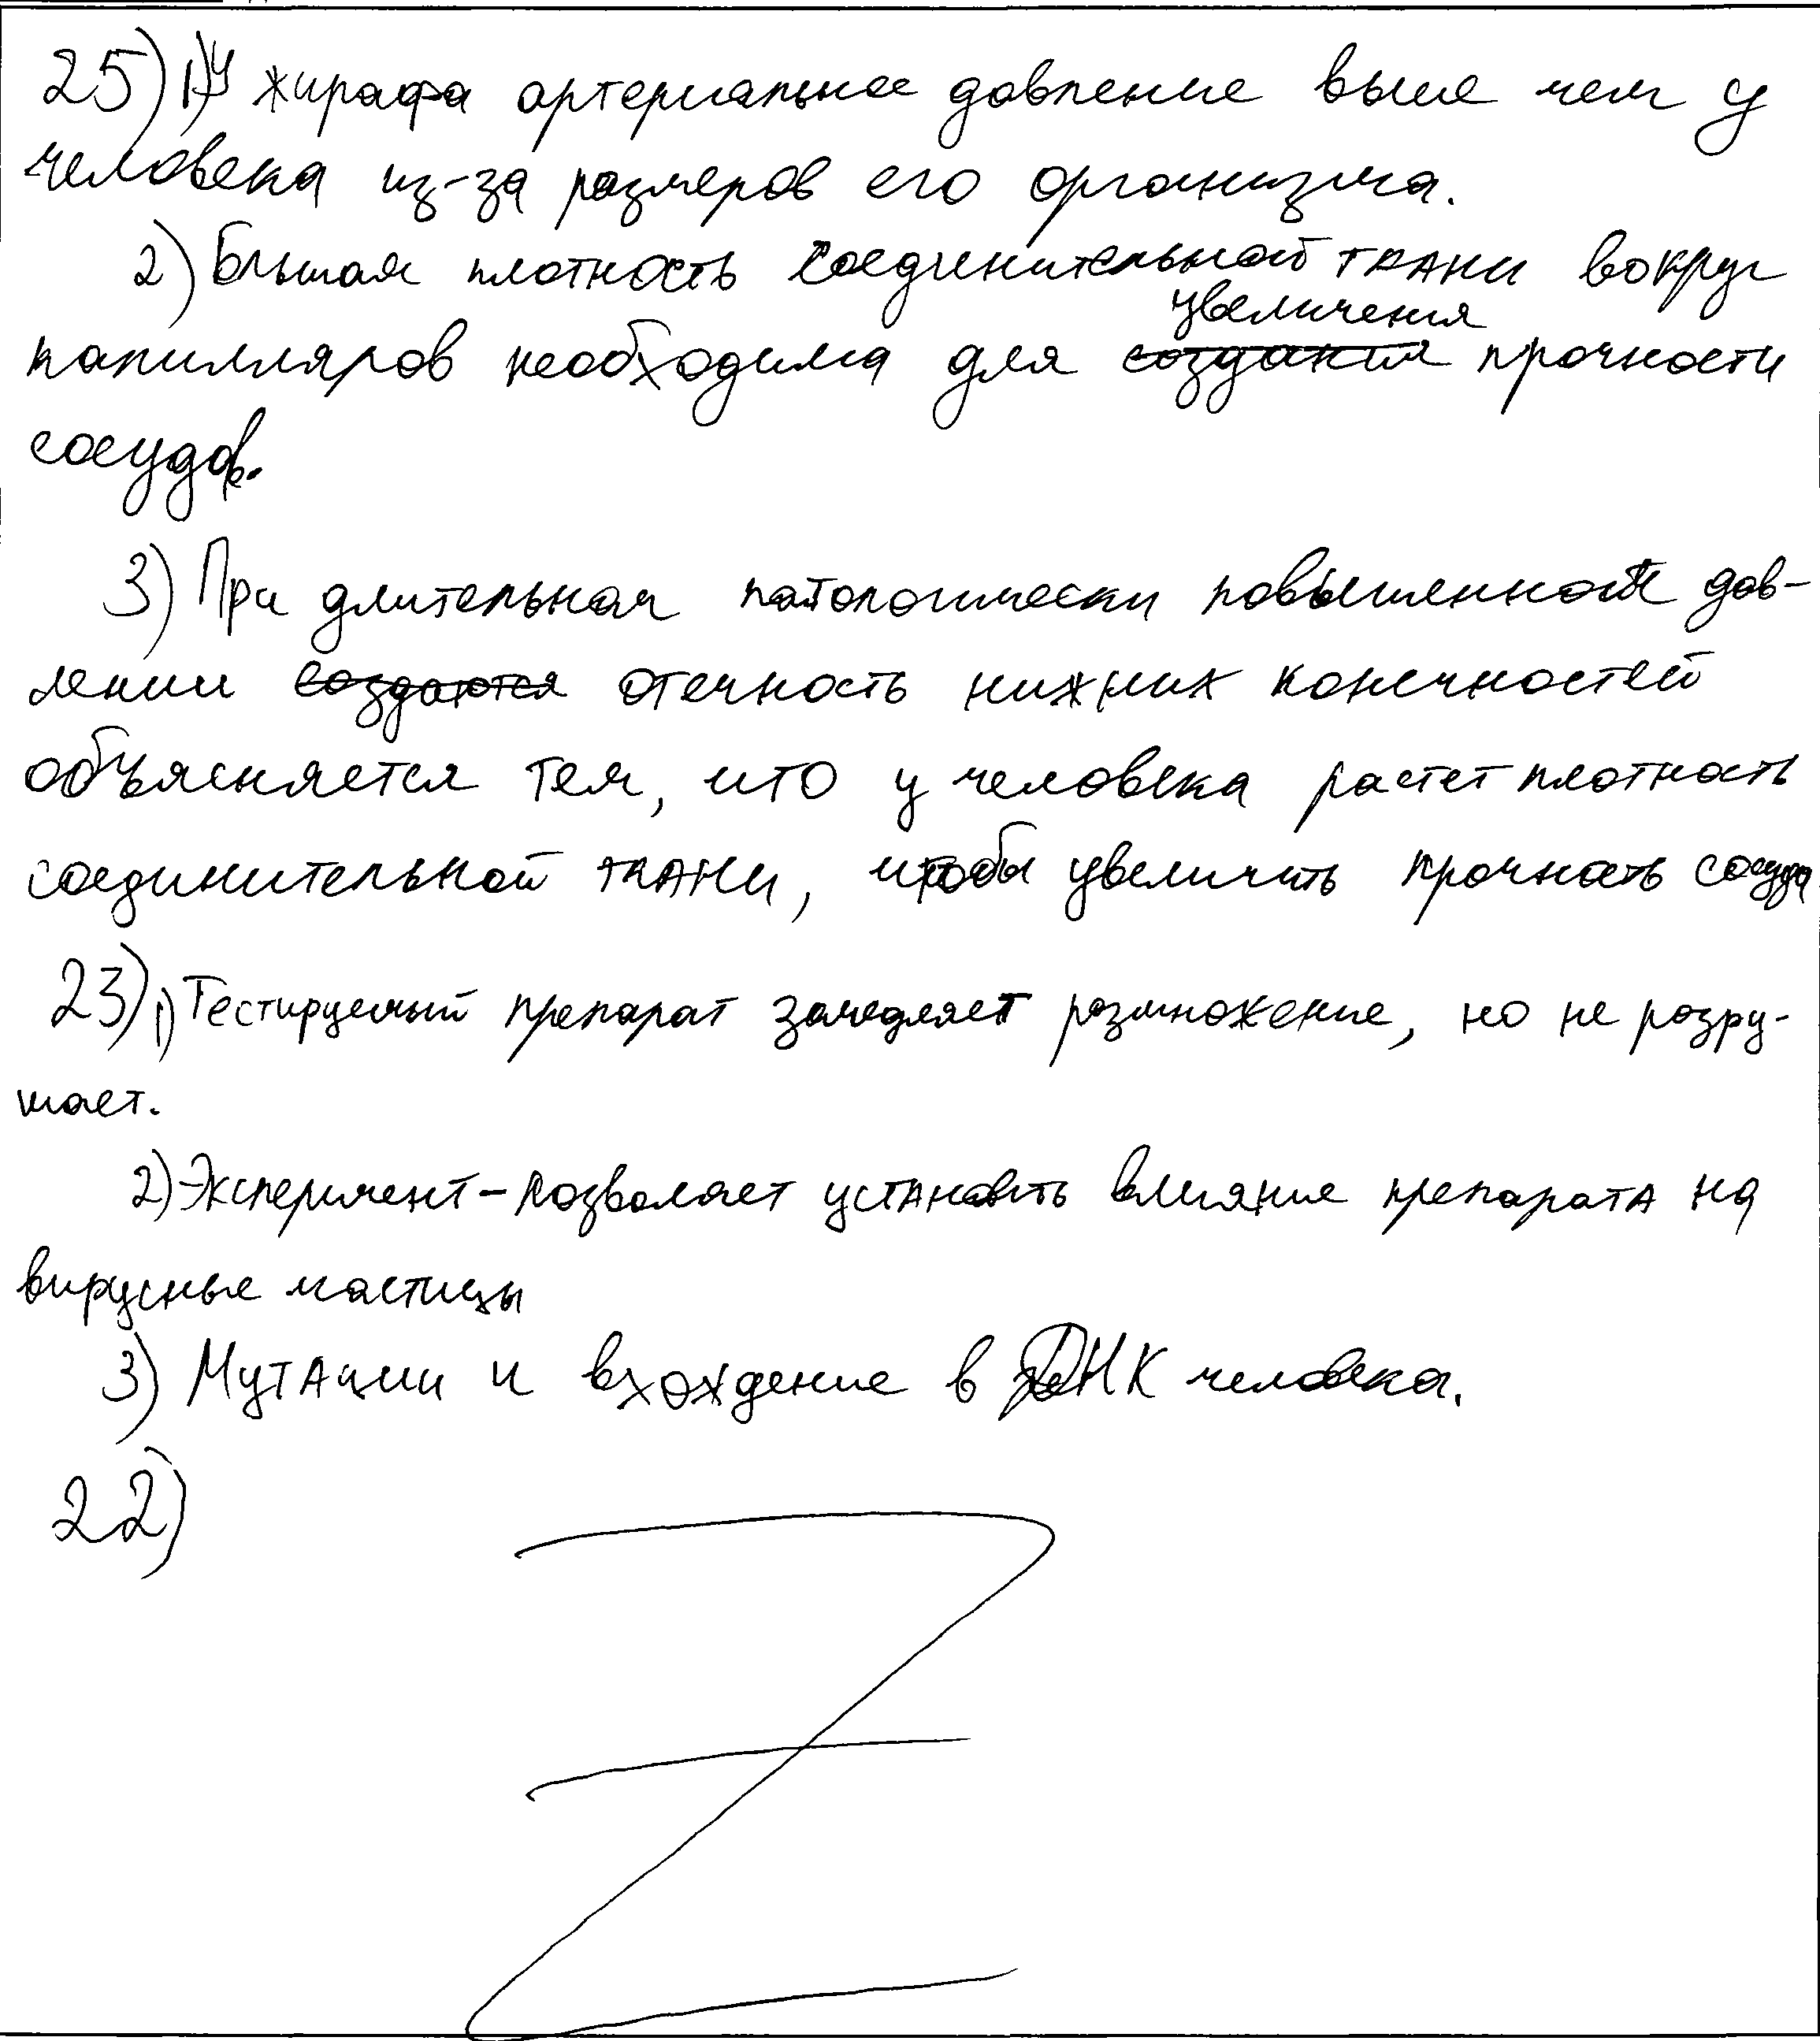 25) 1) У жирафа артериальное давление выше чем у
человека из-за размеров его организма.
2) Большая плотность соединительной ткани вокруг
увеличения
капилляров необходима для создания прочности
сосудов.
3) При длительном патологически повышенном дав-
лении создаются отечность нижних конечностей
объясняется тем, что у человека растет плотность
соединительной ткани, чтобы увеличить прочность сосуда
23) 1) Тестируемый препарат замедляет размножение, но не разру-
шает.
2) Эксперимент - позволяет установить влияние препарата на
вирусные частицы
3) Мутации и вхождение в ДНК человека.
22)
Z